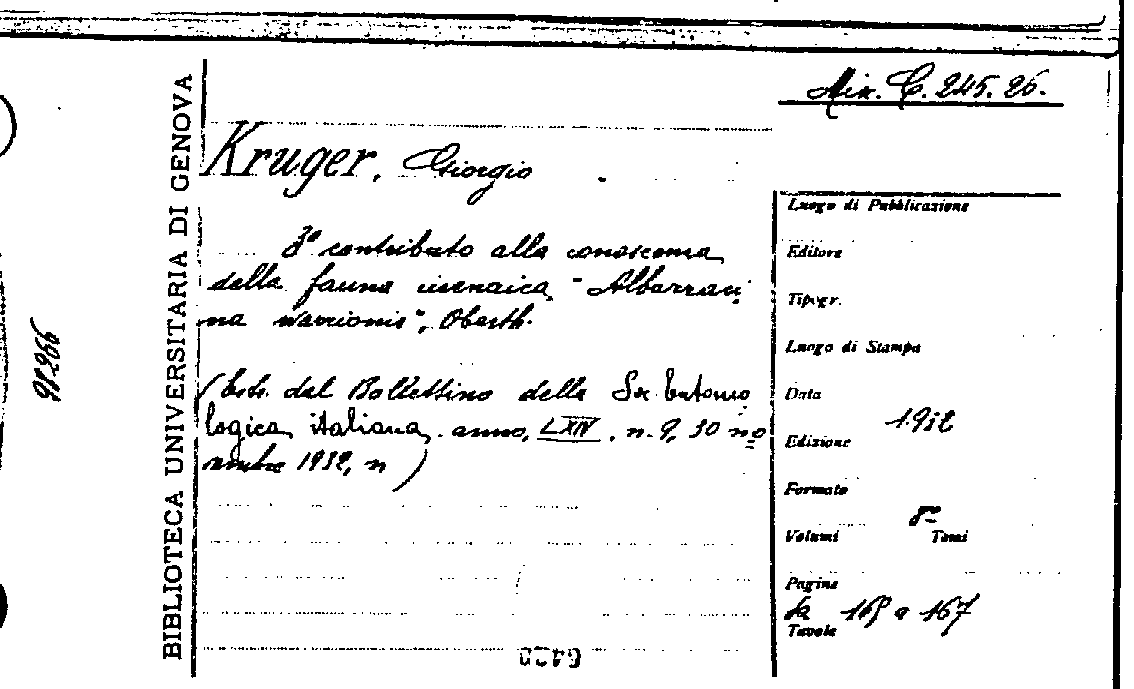 BIBLIOTECA UNIVERSITARIA DI GENOVA
Min. C. 245. 26.
Kruger, Giorgio
3° contributo alla conoscenza
della fauna cirenaica, "Albarraci
na warrionis", Oberth.
(Estr. dal Bollettino della Soc Entomo
logica italiana, anno, LXIV, n. 9, 30 no
vembre 1932, n )
Luogo di Pubblicazione
Editore
Tipogr.
Luogo di Stampa
Data
1932
Edizione
Formato
8°
Volumi
Tomi
Pagine
da 165 a 167
Tavole